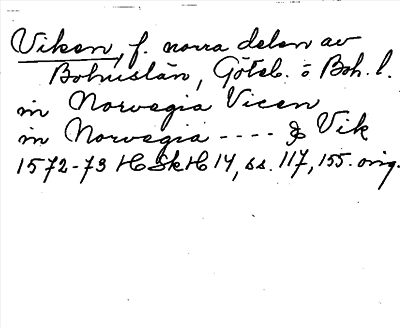 Viken, f. norra delen av
Bohuslän, Göteb. o Boh. l.
in Norvegia Vicen
in Norvegia ---- & Vik
1572-73 HSkH 14, ss. 117, 155. orig.